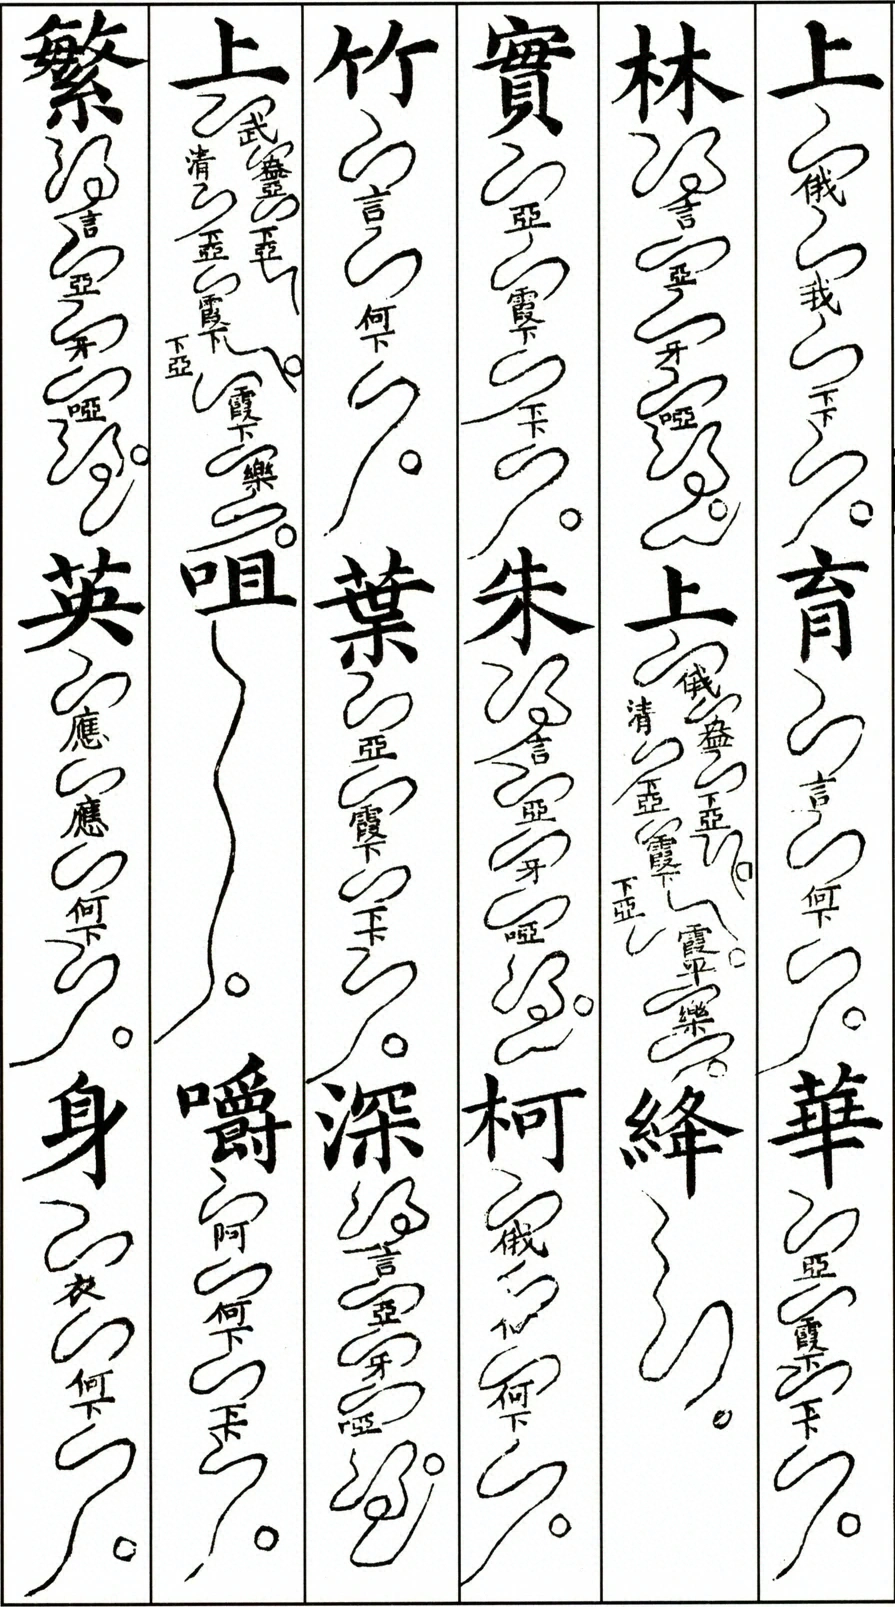 上俄我下下育言何下華亞霞下下下
林言亞牙啞上俄盎下亞清下亞霞下下亞霞平樂絳
實亞霞下下下朱言亞牙啞柯俄何下
竹言何下葉亞霞下下下深言亞牙啞
上武盎亞下亞清下亞霞下下亞霞下樂咀嚼阿何下下下
繁言亞牙啞英應應何下身衣何下